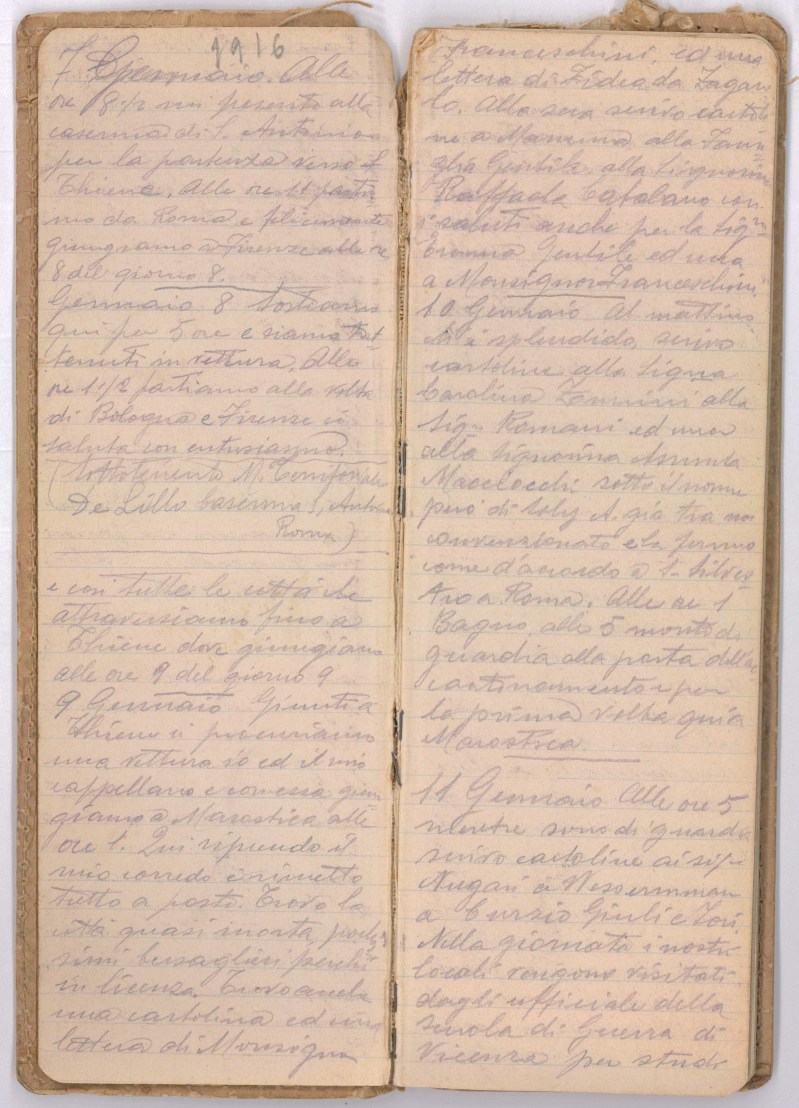 1916
7 Gennaio. Alle
ore 8 1/2 mi presento alla
caserma di S. Antonio
per la partenza verso
Thiene. Alle ore 11 partia
mo da Roma e felicemente
giungiamo a Firenze alle ore
8 del giorno 8.
Gennaio 8 Sostiamo
qui per 5 ore e siamo trat
tenuti in vettura. Alle
ore 1 1/2 partiamo alla volta
di Bologna e Firenze ci
saluta con entusiasmo.
(Sottotenente M. Territoriale
De Lillo Caserma S. Anton
Roma)
e con tutte le città che
attraversiamo fino a
Thiene dove giungiamo
alle ore 9 del giorno 9
9 Gennaio Giunti a
Thiene ci procuriamo
una vettura io ed il mio
cappellano e con essa giun
giamo a Marostica alle
ore 1. Qui riprendo il
mio corredo e rimetto
tutto a posto. Trovo la
città quasi morta, pochis
simi bersaglieri perchè
in licenza. Trovo anche
una cartolina ed una
lettera di Monsignor
Franceschini, ed una
lettera di Fidea da Zagaro
lo. Alla sera scrivo cartoli
ne a Mamma alla Fami
glia Gentile alla Signorina
Raffaela Catalano con
i saluti anche per la Sig.na
Gentile ed una
a Monsignor Franceschini
10 Gennaio Al mattino
è splendido, scrivo
cartoline alla Sig.na
Carolina Zannini alla
Sig. Romani ed una
alla Signorina Assunta
Macelocchi sotto il nome
però di Loly A. già tra noi
convenzionato e la fermo
come d'accordo a S. Silves
tro a Roma. Alle ore 1
Bagno, alle 5 monto di
guardia alla porta dell'ac
cantonamento e per
la prima volta qui a
Marostica.
11 Gennaio Alle ore 5
mentre sono di guardia
scrivo cartoline ai sigri
Nugari a Wessermman
a Curzio Giuli e Zori.
Nella giornata i nostri
locali vengono visitati
dagli ufficiale della
Scuola di Guerra di
Vicenza per studi